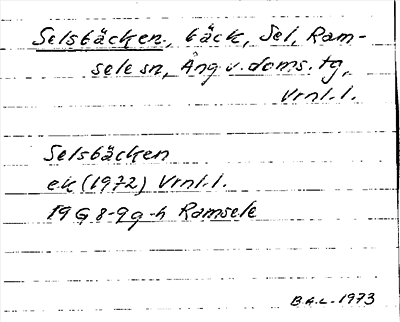 Selsbäcken, bäck, Sel, Ram-
sele sn, Ång v. doms. tg,
Vrnl. l.
Selsbäcken
ek (1972) Vrnl. l.
19 G 8-9 g-h Ramsele
B.G.L. 1973